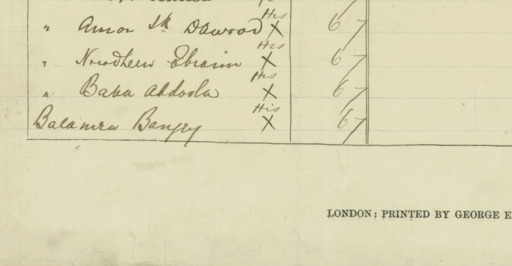 " Amon Sk Dawood His X 67
" Noordheen Ebraim His X 67
" Baba Abdoola His X 67
Balamea Bangey His X 67
LONDON; PRINTED BY GEORGE E